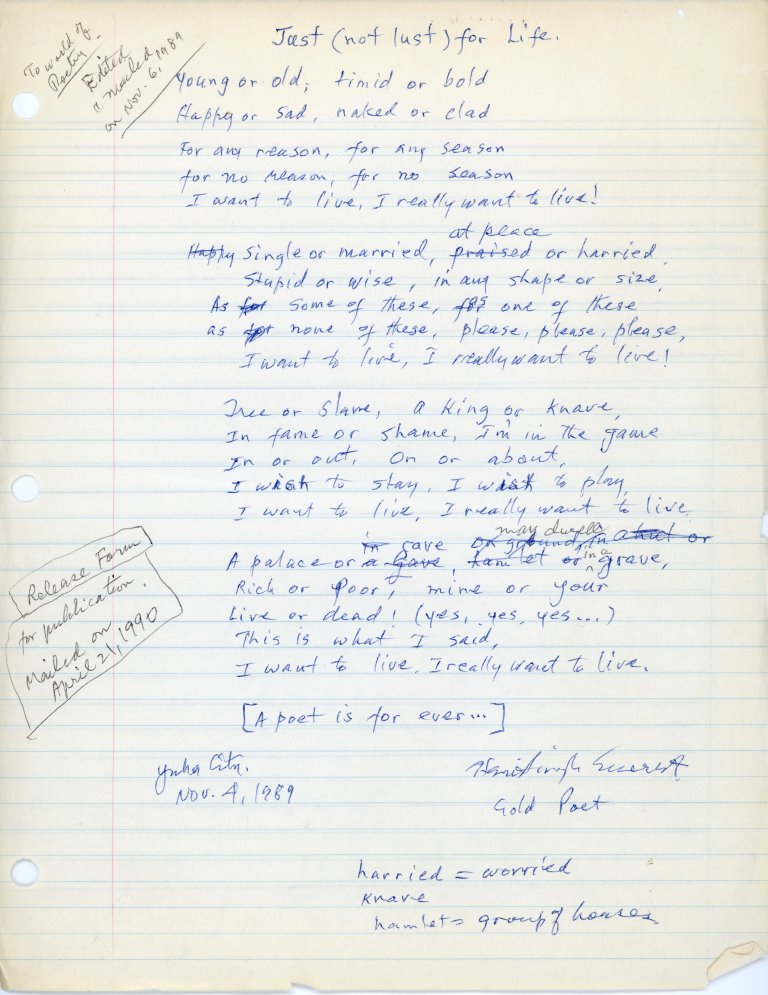 To world of
Poetry
Edited
& mailed
on Nov. 6, 1989
Just (not lust) for Life.
Young or old, timid or bold
Happy or sad, naked or clad
For any reason, for any season
for no reason, for no season
I want to live, I really want to live!
at peace
Happy single or married, praised or harried,
Stupid or wise, in any shape or size,
As for some of these, for as one of these
as for none of these, please, please, please,
I want to live, I really want to live!
Free or slave, a King or knave,
In fame or shame, I'm in the game
In or out, on or about,
I wish to stay, I wish to play,
I want to live, I really want to live
in cave or ground, in a hut or
may dwell
A palace or a cave, hamlet or in a grave,
Rich or poor, mine or your
Live or dead! (yes, yes, yes...)
This is what I said,
I want to live, I really want to live.
[A poet is for ever...]
Release Form
for publication.
Mailed on
April 21, 1990
Yuba City.
Nov. 4, 1989
Everest
Gold Poet
harried = worried
knave
hamlet = group of houses